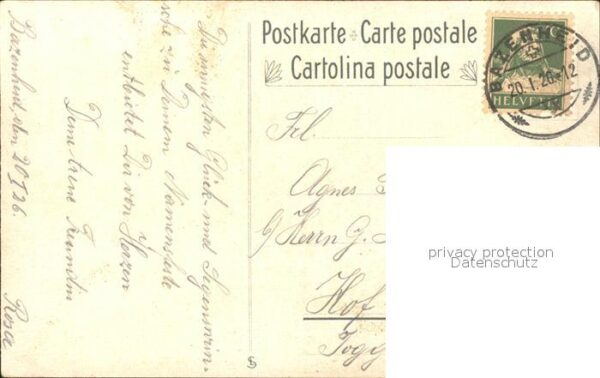 Postkarte Carte postale
Cartolina postale
BAZENHEID
20. I. 26. 12
HELVETIA
Frl.
Agnes
c/ Herrn G.
Hof
Togg
privacy protection
Datenschutz
Bazenheid, den 20/I 26.
Die innigsten Glück- und Segenswün-
sche zu Deinem Namensfeste
entbietet Dir von Herzen
Deine treue Freundin
Rosa